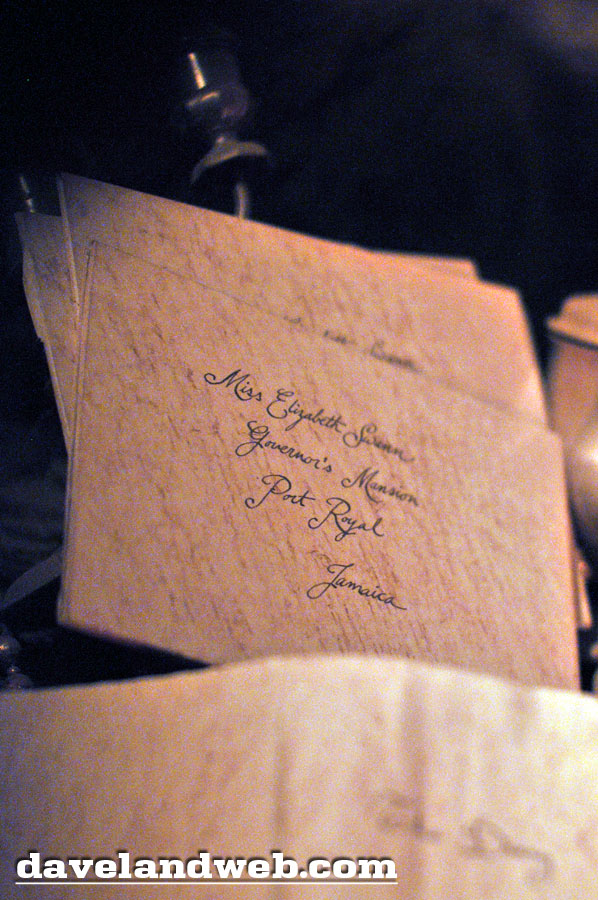 Miss Elizabeth Swann
Governor's Mansion
Port Royal
Jamaica
davelandweb.com